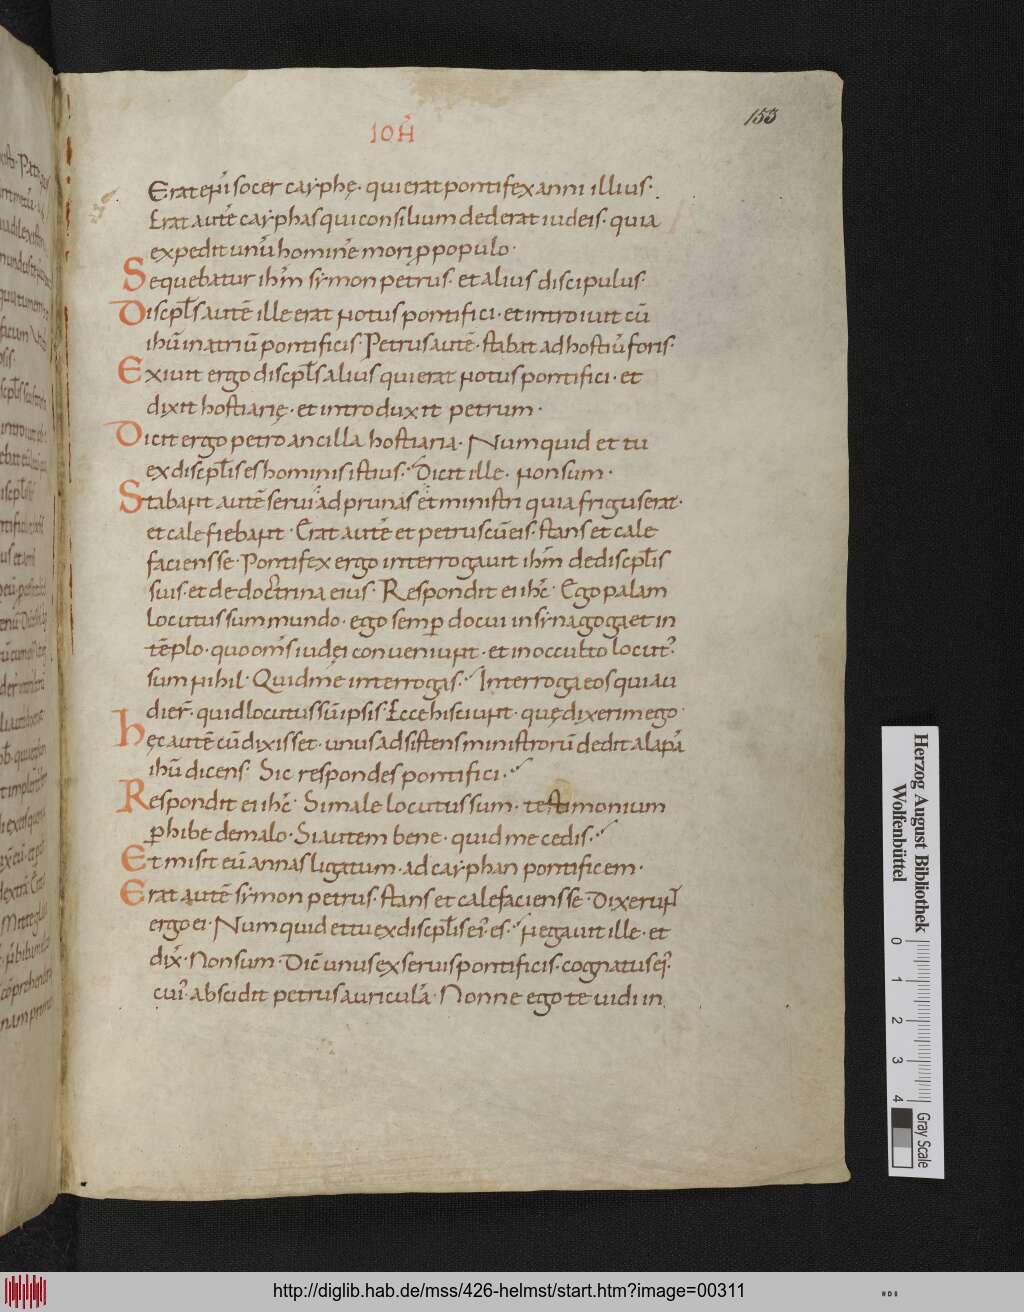 IOH̄
153
Erat eni socer cayphę. qui erat pontifex anni illius.
Erat autē cayphas qui consilium dederat iudeis. quia
expedit unū hominē mori p̱ populo.
Sequebatur ihm̄ symon petrus. et alius discipulus.
Discipl̄s autē ille erat notus pontifici. et introiuit cū
ihū in atriū pontificis. Petrus autē. stabat ad hostiū foris.
Exiuit ergo discipl̄s alius qui erat notus pontifici. et
dixit hostiarię. et introduxit petrum.
Dicit ergo petro ancilla hostiaria. Numquid et tu
ex discipl̄is es hominis istius. Dicit ille. non sum.
Stabant autē serui ad prunas et ministri quia frigus erat.
et calefiebant. Erat autē et petrus cū eis. stans et cale
faciens se. Pontifex ergo interrogauit ihm̄ de discipl̄is
suis. et de doctrina eius. Respondit ei ihc̄. Ego palam
locutus sum mundo. ego semp̱ docui in synagoga et in
tēplo. quo om̄s iudęi conueniunt. et in occulto locut᾽
sum nihil. Quid me interrogas. Interroga eos qui au
dier̄. quid locutus sū ipsis. Ecce hi sciunt. quę dixerim ego.
hęc autē cū dixisset. unus adsistens ministrorū dedit alapā
ihū dicens. Sic respondes pontifici.
Respondit ei ihc̄. Si male locutus sum. testimonium
p̱hibe de malo. Si autem bene. quid me cedis.
Et misit eū annas ligatum. ad cayphan pontificem.
Erat autē symon petrus. stans et calefaciens se. Dixerunt
ergo ei. Numquid et tu ex discipl̄is ei᾽ es. negauit ille. et
dix̄. Non sum. Dic̄ unus ex seruis pontificis. cognatus ei᾽.
cui᾽ abscidit petrus auriculā. Nonne ego te uidi in
Herzog August Bibliothek
Wolfenbüttel
0 1 2 3 4
Gray Scale
http://diglib.hab.de/mss/426-helmst/start.htm?image=00311